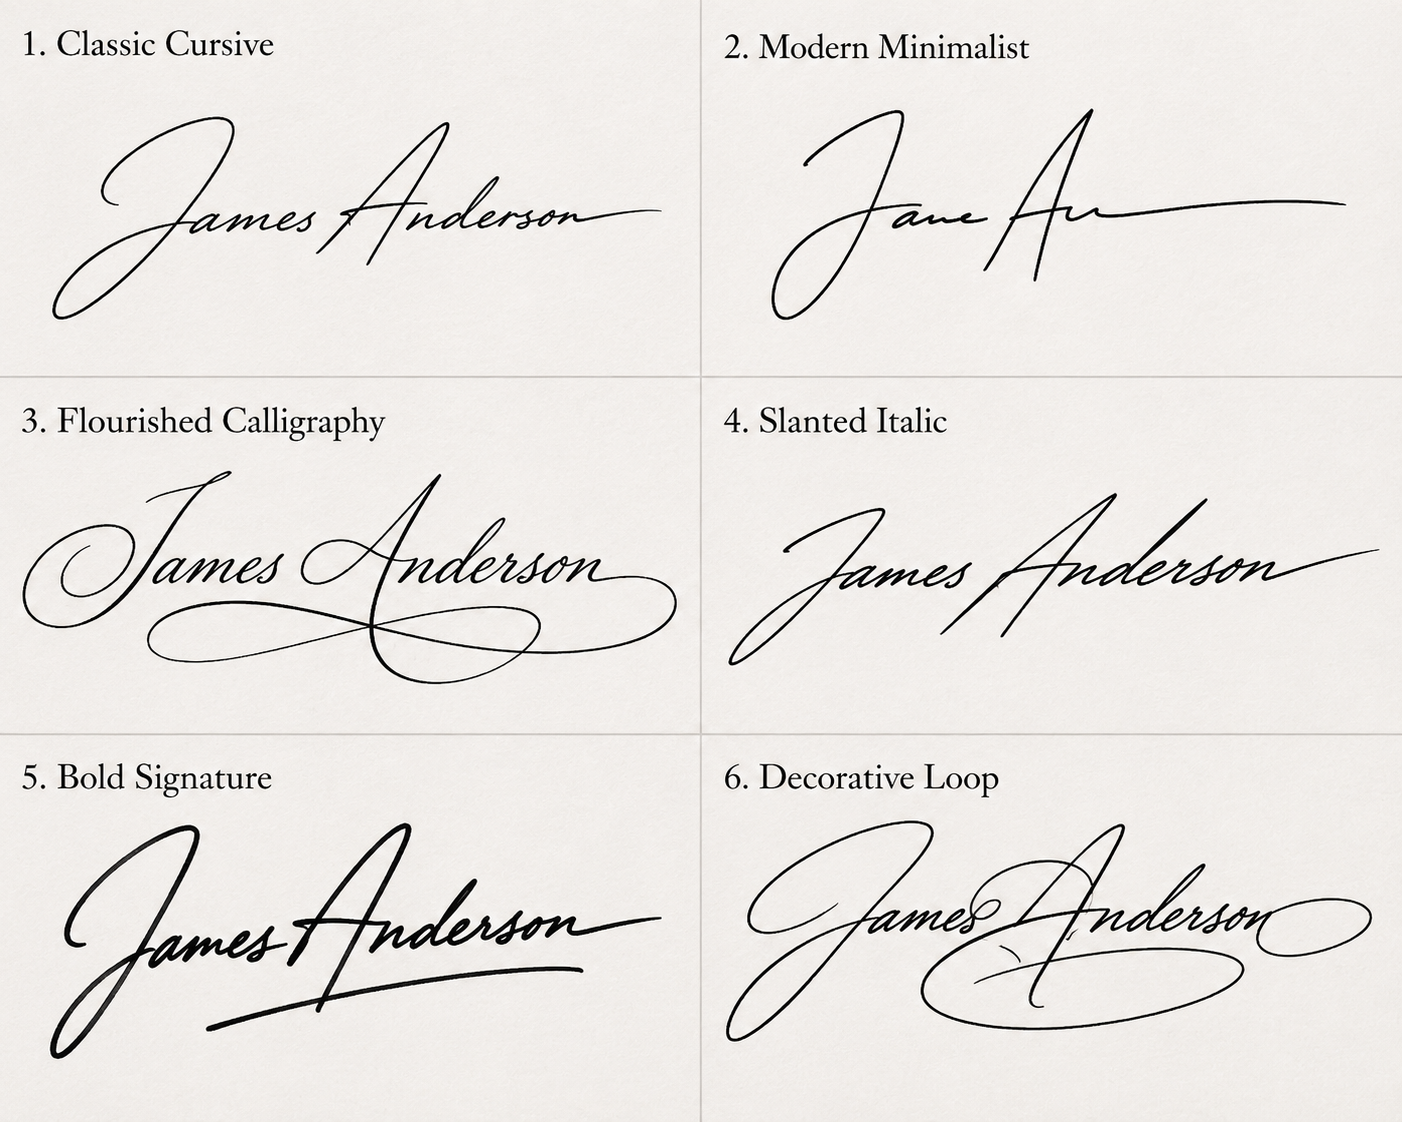 1. Classic Cursive
James Anderson
2. Modern Minimalist
Jane Au
3. Flourished Calligraphy
James Anderson
4. Slanted Italic
James Anderson
5. Bold Signature
James Anderson
6. Decorative Loop
James Anderson